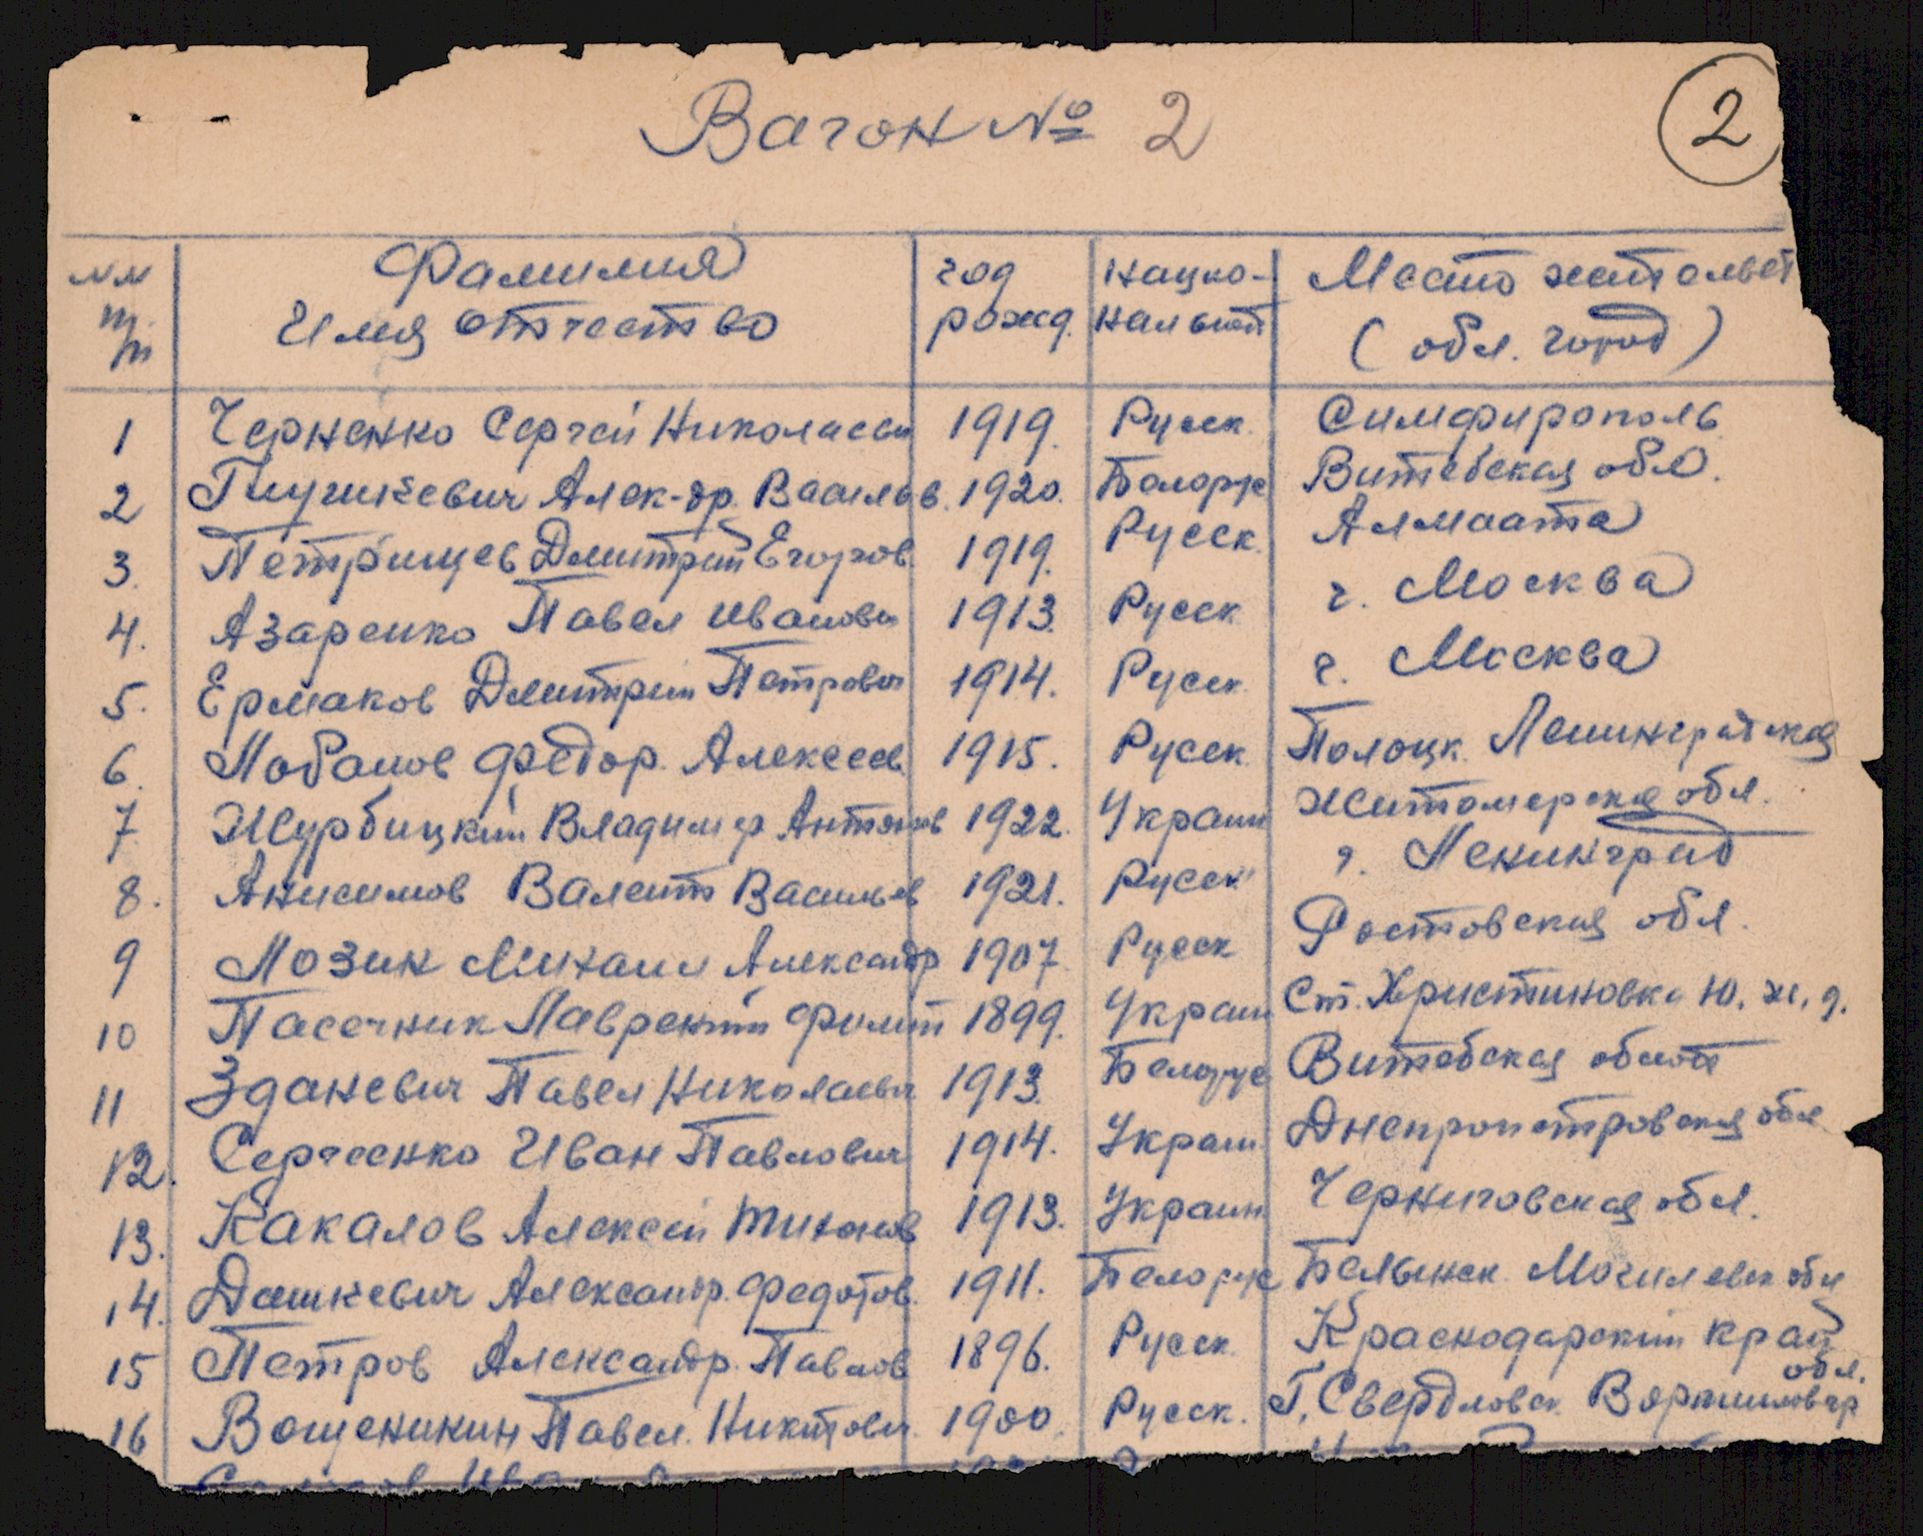 2
Вагон № 2
№№ п/п Фамилия Имя отчество год рожд. нацио-нальност Место жительст (обл. город)
1 Черненко Сергей Николаевич 1919. Русск. Симфирополь
2 Глушкевич Алек-др. Васильев. 1920. Белорус Витебская обл.
3. Петрищев Дмитрий Егоров. 1919. Русск. Алмаата
4. Азаренко Павел Иванович 1913. Русск г. Москва
5. Ермаков Дмитрий Петрович 1914. Русск г. Москва
6. Лобанов Федор. Алексеев. 1915. Русск. Полоцк. Ленинградская
7. Журбицкий Владимир Антонов 1922. Украин Житомерская обл.
8. Анисимов Валент Васильев 1921. Русск г. Ленинград
9 Лозин Михаил Александр 1907 Русск Ростовская обл.
10 Пасечник Лаврентий Филип 1899. Украин Ст. Христиновка Ю. ж. д.
11 Зданевич Павел Николаевич 1913. Белорус Витебская област
12. Сергеенко Иван Павлович 1914. Украин Днепропетровская обл
13. Какалов Алексей Тихонов 1913. Украин Черниговская обл.
14. Дашкевич Александр. Федотов. 1911. Белорус Белынич. Могилевск обл
15 Петров Александр. Павлов 1896. Русск. Краснодарский край
16 Вощеникин Павел. Никитович 1900. Русск. Г. Свердловск Ворошиловгр обл.